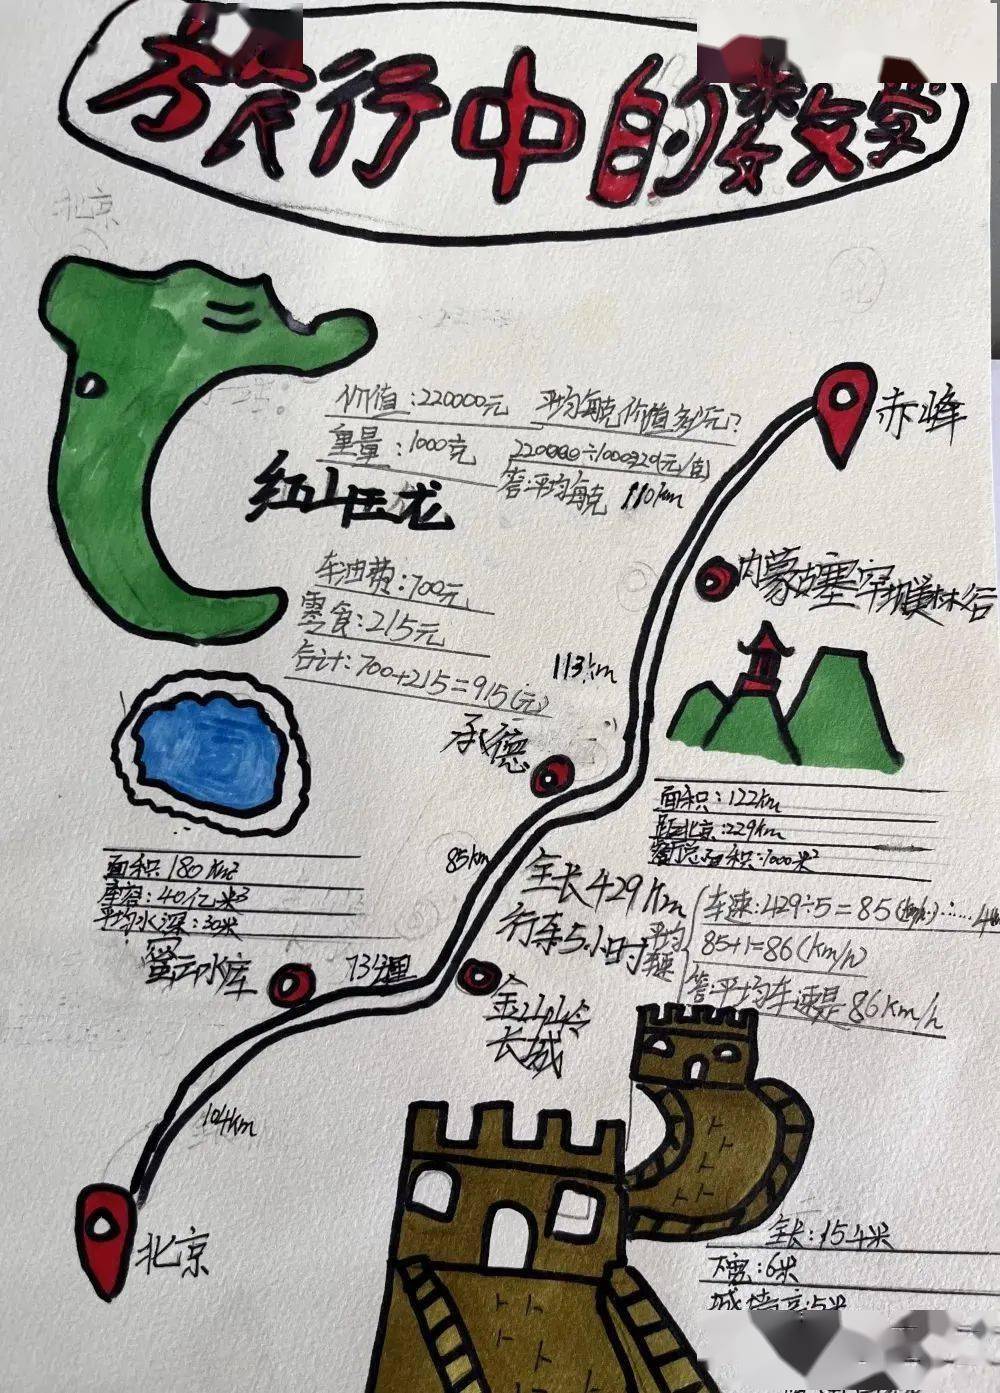 旅行中的数学
北京
价值:220000元
平均每克价值多少元?
重量:1000克
答:平均每克
110km
赤峰
红山玉龙
内蒙古塞罕
林谷
车油费:700元
零食:215元
合计:700+215=915(元)
113km
承德
面积:122km
距北京:229km
面积:1000米²
85km
全长429km
行车5小时
平均
车速:429÷5=85(km/h)……4
85+1=86(km/h)
答:平均车速是86km/h
面积:180km²
库容:40亿米³
平均水深:30米
密云水库
73公里
金山岭
长城
104km
北京
全长:154米
下宽:6米
城墙高:5米